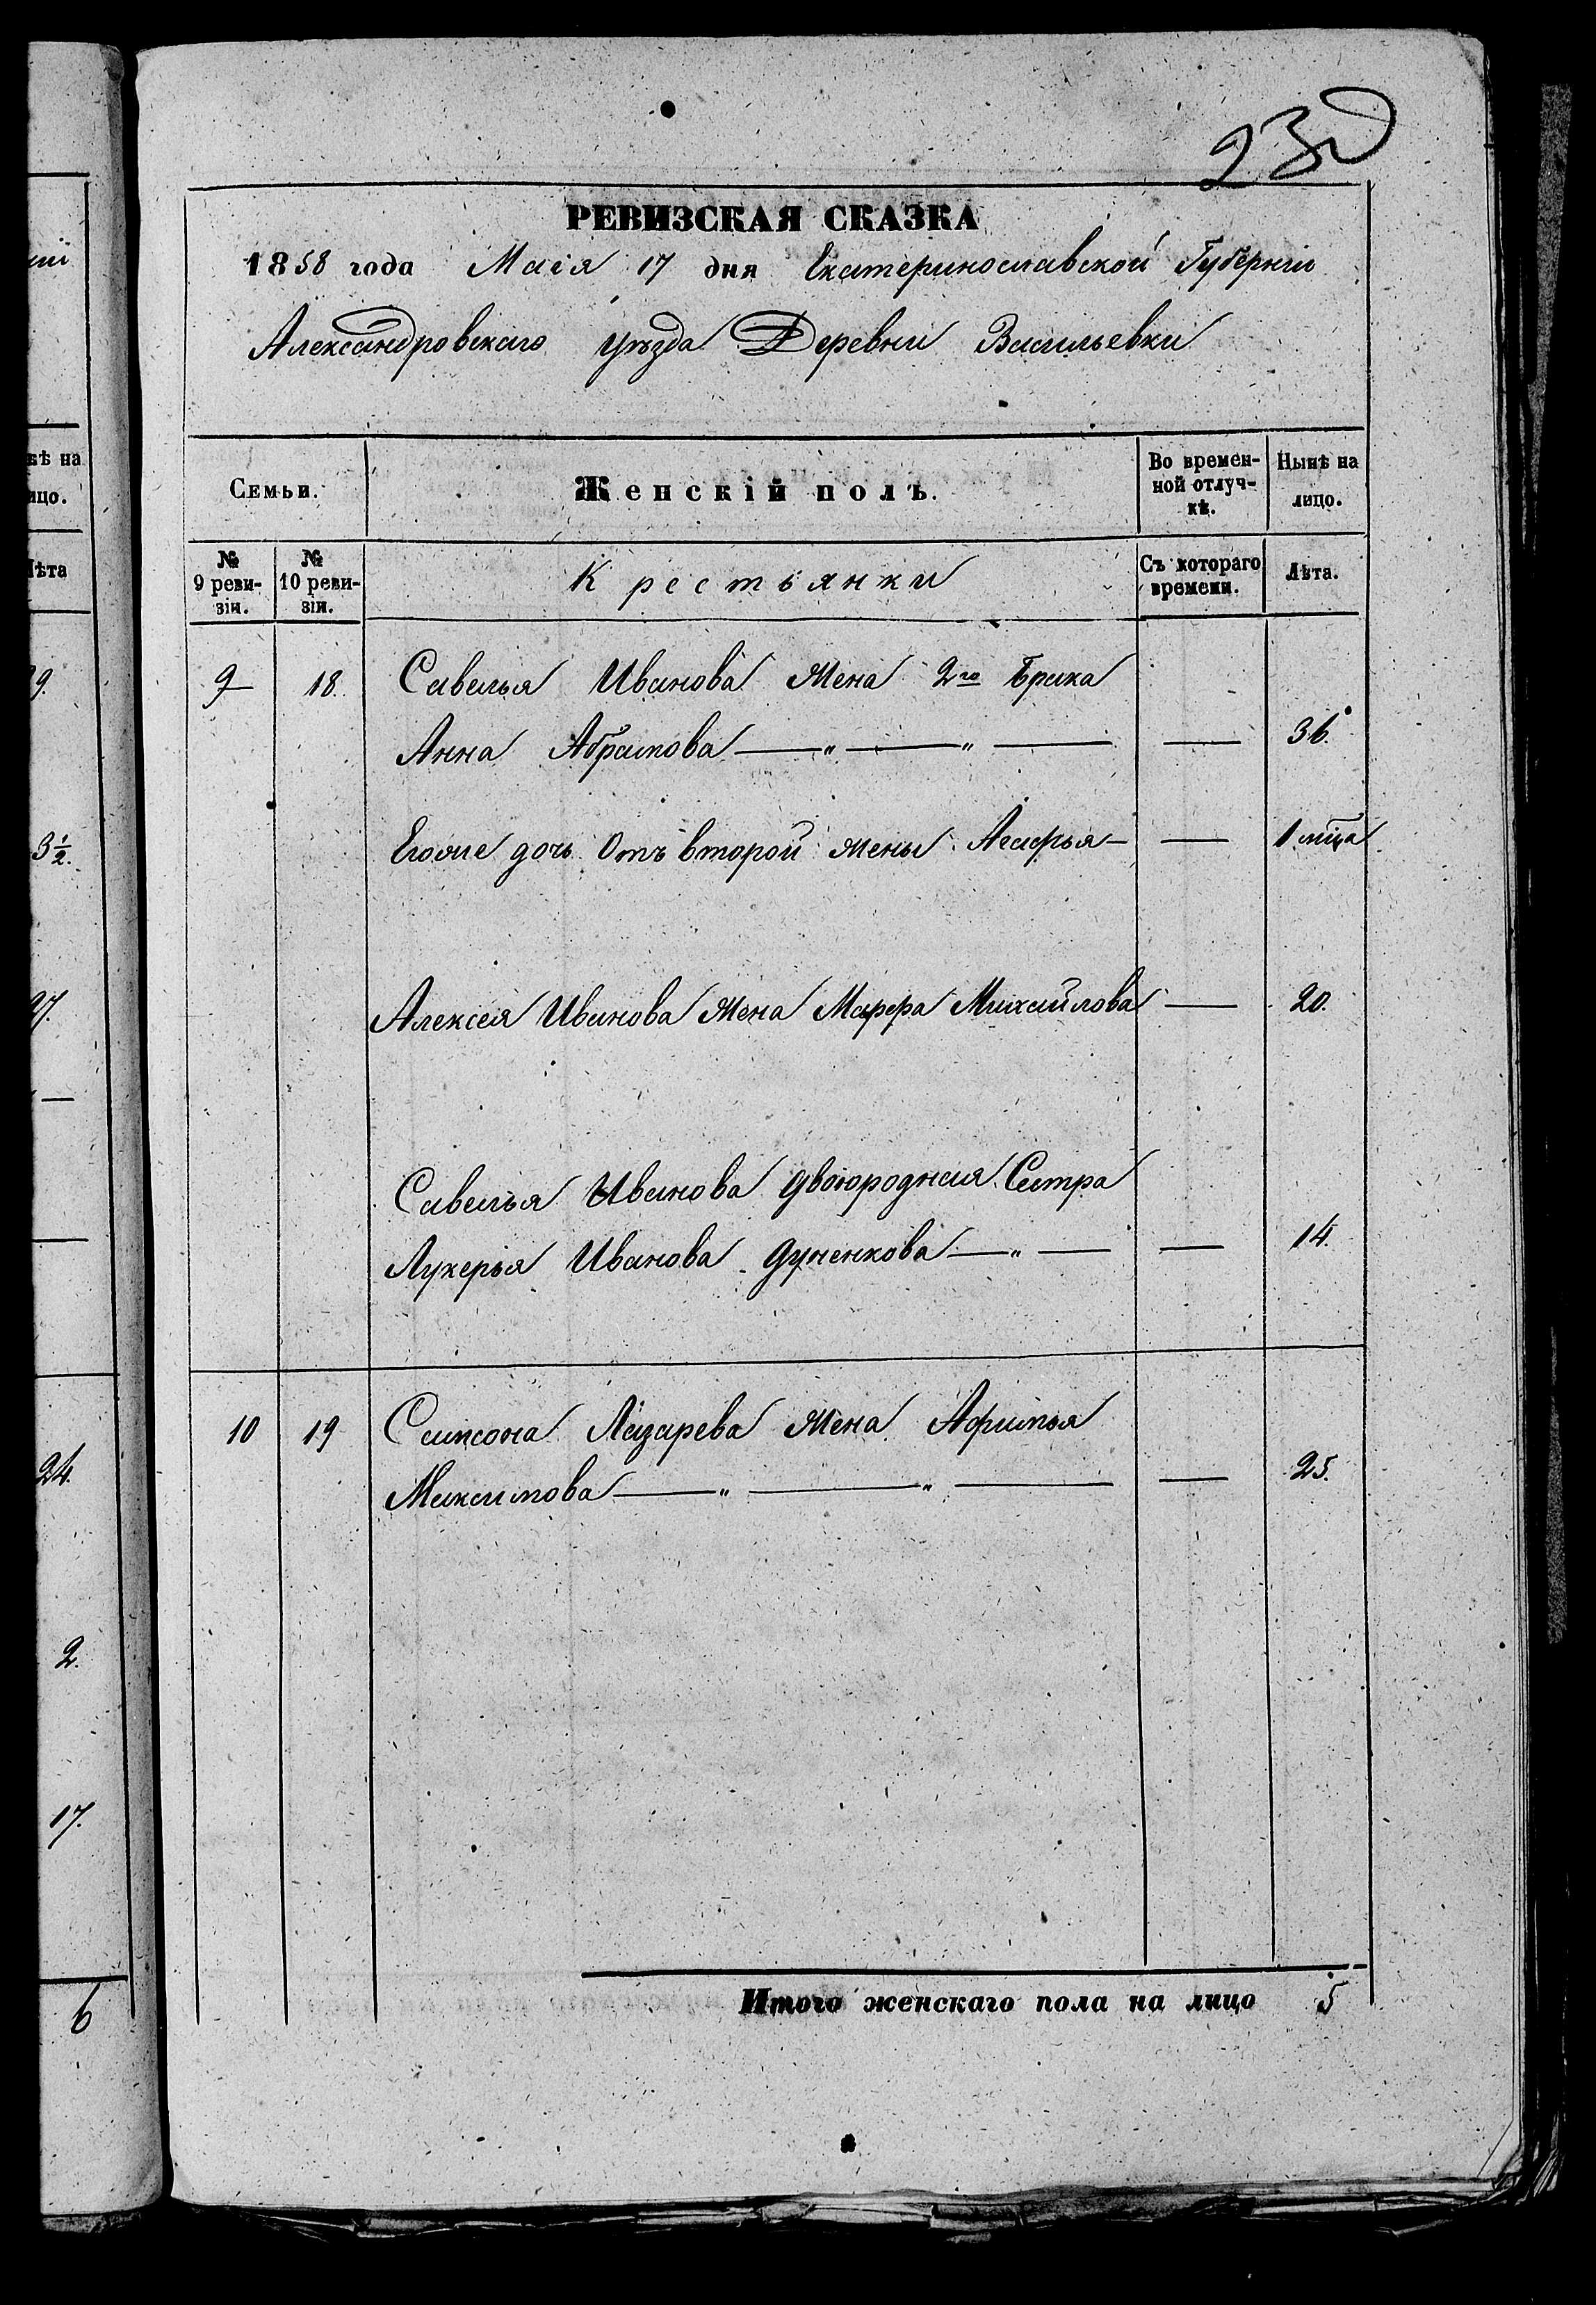 230
РЕВИЗСКАЯ СКАЗКА
1858 года Маія 17 дня Екатеринославской Губерніи
Александровскаго уѣзда Деревни Васильевки
Семьи.
Женскій полъ.
Во времен-
ной отлуч-
кѣ.
Нынѣ на
лицо.
№
9 реви-
зіи.
№
10 реви-
зіи.
Крестьянки
Съ котораго
времени.
Лѣта.
9 18. Савелья Иванова Жена 2го брака
Анна Абрамова — „ — „ — — 36.
Егоже дочь Отъ второй жены Агафья — — 1 мца
Алексея Иванова Жена Марфа Михайлова — 20.
Савелья Иванова двоюродная Сестра
Лукерья Иванова — „ — — 14.
10 19 Самсона Лазарева Жена Афимья
Максимова — „ — „ — — 25.
Итого женскаго пола на лицо 5
ѣ на
ицо.
ѣта
9.
3½.
27.
24.
2.
17.
6